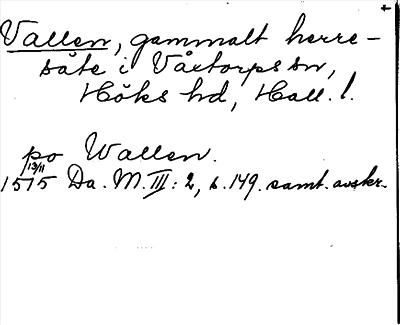 +
Vallen, gammalt herre-
säte i Våxtorps sn,
Höks hd, Hall. l.
po Wallen.
13/11
1575 Da. M. III: 2, s. 149. samt. avskr.